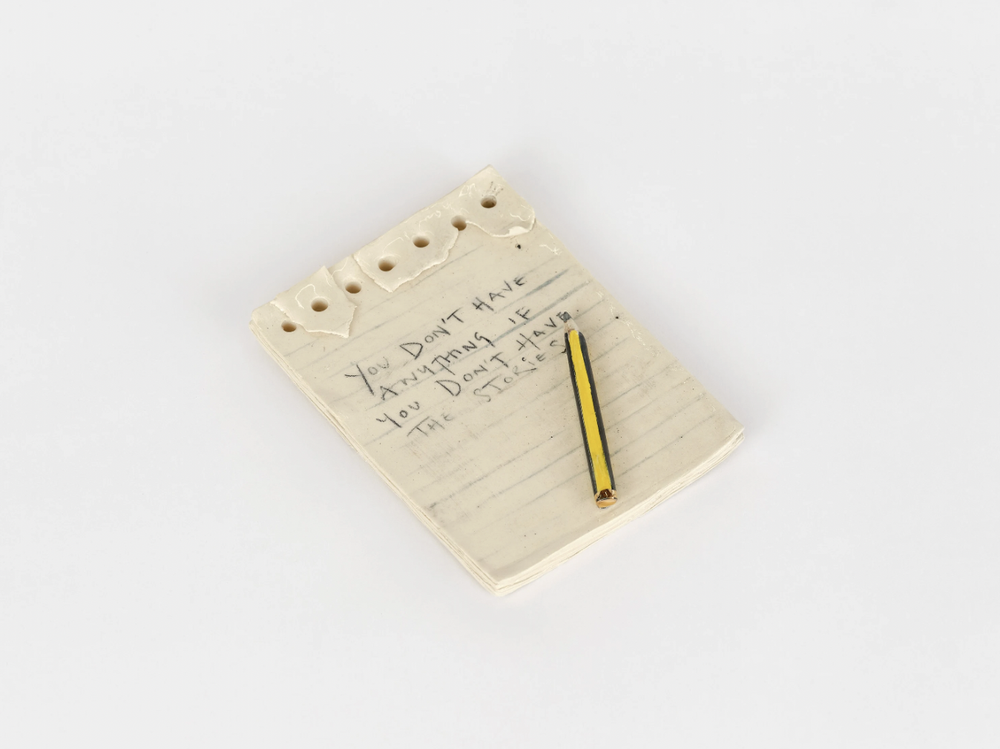 YOU DON'T HAVE
ANYTHING IF
YOU DON'T HAVE
THE STORIES